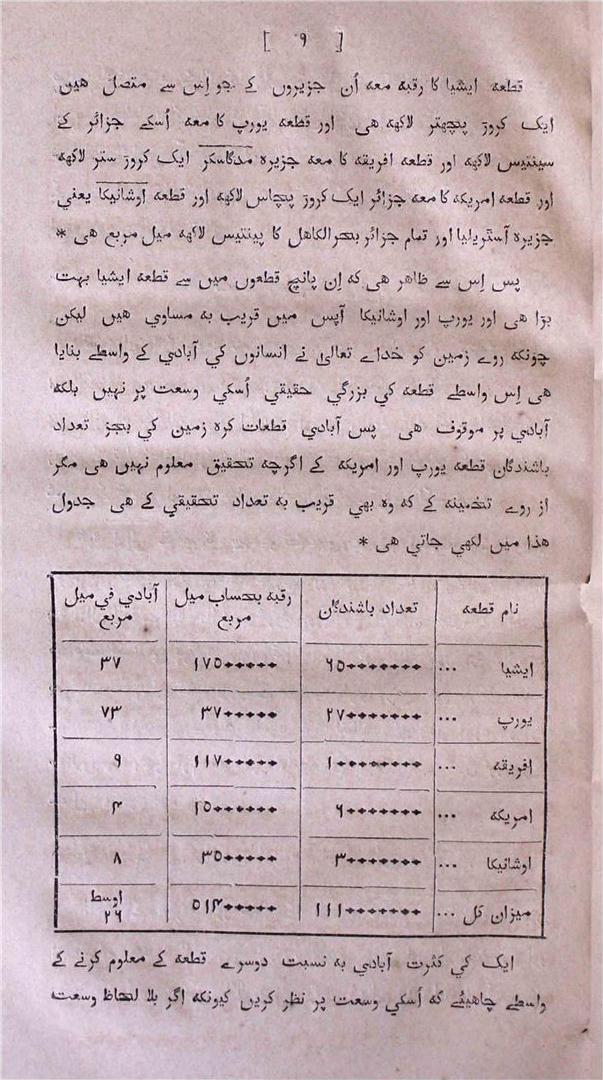 [ ۹ ]
قطعه ایشیا کا رقبه معه اُن جزیروں کے جو اِس سے متصل هیں
ایک کروڑ پچهتر لاکهه هی اور قطعه یورپ کا معه اُسکے جزائر کے
سینتیس لاکهه اور قطعه افریقه کا معه جزیره مدگاسکر ایک کروڑ ستر لاکهه
اور قطعه امریکه کا معه جزائر ایک کروڑ پچاس لاکهه اور قطعه اوشانیکا یعني
جزیره آسٹریلیا اور تمام جزائر بحر الکاهل کا پینتیس لاکهه میل مربع هی *
پس اِس سے ظاهر هی که اِن پانچ قطعوں میں سے قطعه ایشیا بهت
بڑا هی اور یورپ اور اوشانیکا آپس میں قریب به مساوي هیں لیکن
چونکه روے زمین کو خداے تعالیٰ نے انسانوں کي آبادي کے واسطے بنایا
هی اِس واسطے قطعه کي بزرگي حقیقي اُسکي وسعت پر نهیں بلکه
آبادي پر موقوف هی پس آبادي قطعات کره زمین کي بجز تعداد
باشندگان قطعه یورپ اور امریکه کے اگرچه تحقیق معلوم نهیں هی مگر
از روے تخمینه کے که وه بهي قریب به تعداد تحقیقي کے هی جدول
هذا میں لکهي جاتي هی *
نام قطعه | تعداد باشندگان | رقبه بحساب میل مربع | آبادي في میل مربع
ایشیا ... | ۶۵۰۰۰۰۰۰۰ | ۱۷۵۰۰۰۰۰ | ۳۷
یورپ ... | ۲۷۰۰۰۰۰۰۰ | ۳۷۰۰۰۰۰ | ۷۳
افریقه ... | ۱۰۰۰۰۰۰۰۰ | ۱۱۷۰۰۰۰۰ | ۹
امریکه ... | ۶۰۰۰۰۰۰۰ | ۱۵۰۰۰۰۰۰ | ۴
اوشانیکا ... | ۳۰۰۰۰۰۰۰ | ۳۵۰۰۰۰۰ | ۸
میزان کل ... | ۱۱۱۰۰۰۰۰۰۰ | ۵۱۴۰۰۰۰۰ | اوسط ۲۶
ایک کي کثرت آبادي به نسبت دوسرے قطعه کے معلوم کرنے کے
واسطے چاهیئے که اُسکي وسعت پر نظر کریں کیونکه اگر بلا لحاظ وسعت